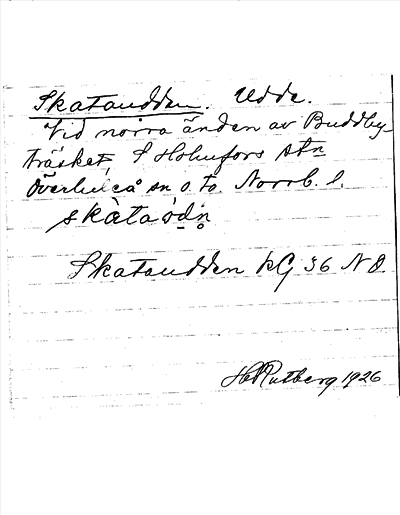 Skataudden. Udde.
Vid norra änden av Buddby-
träsket, S Holmfors stn
Överluleå sn o. to. Norrb. l.
skàtaòdn̥
Skataudden kG 36 NO.
H Rutberg 1926